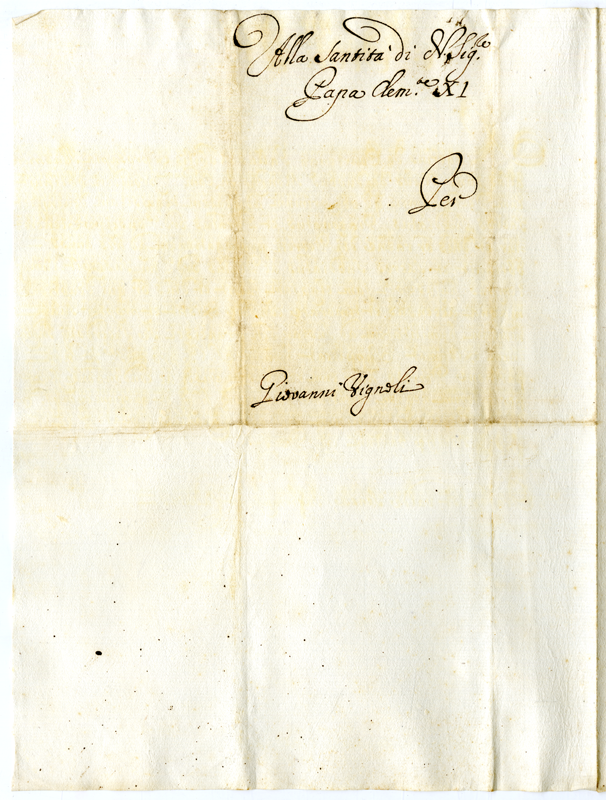 Alla Santità di N. Sig.re
Papa Clem.te XI
Per
Giovanni Vignoli